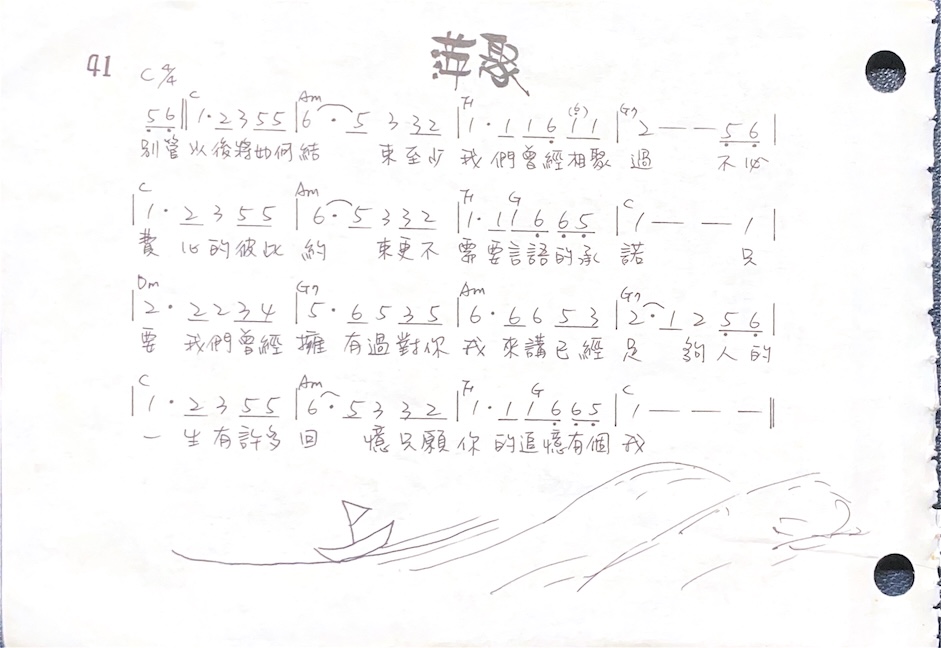 萍聚
41 C 4/4
C Am F (6) G7
5 6 ‖ 1 · 2 3 5 5 | 6 · 5 3 3 2 | 1 · 1 1 6 1 1 | 2 — — 5 6 |
別管以後將如何結 束至少我們曾經相聚過 不必
C Am F G C
| 1 · 2 3 5 5 | 6 · 5 3 3 2 | 1 · 1 1 6 6 5 | 1 — — 1 |
費心的彼此約 束更不需要言語的承諾 只
Dm G7 Am G7
2 · 2 2 3 4 | 5 · 6 5 3 5 | 6 · 6 6 5 3 | 2 · 1 2 5 6 |
要我們曾經擁有過對你我來講已經足 夠人的
C Am F G C
| 1 · 2 3 5 5 | 6 · 5 3 3 2 | 1 · 1 1 6 6 5 | 1 — — — ‖
一生有許多回 憶只願你的追憶有個我